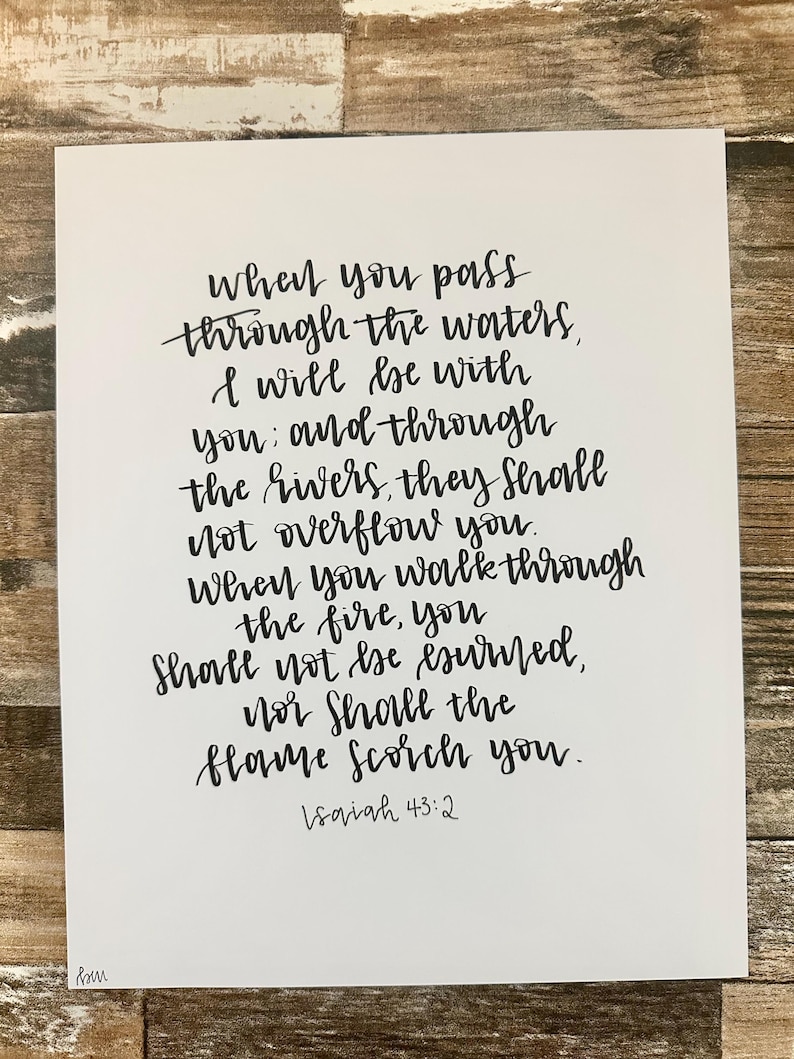 When you pass
through the waters,
I will be with
you; and through
the rivers, they shall
not overflow you.
When you walk through
the fire, you
shall not be burned,
nor shall the
flame scorch you.
Isaiah 43:2